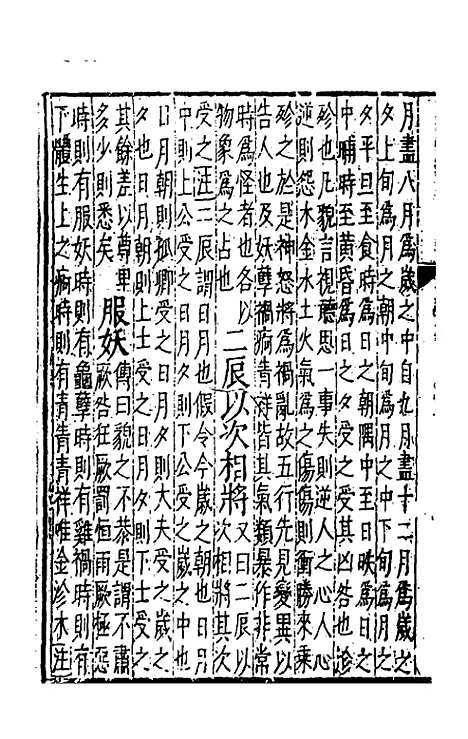 月盡八月爲歲之中自九月盡十二月爲歲之
夕上旬爲月之朝中旬爲月之中下旬爲月之
夕平旦至食時爲日之朝隅中至日昳爲日之
中晡時至黃昏爲日之夕受之受其凶咎也沴
沴也凡貌言視聽思一事失則逆人之心人心
逆則怨木金水土火氣爲之傷傷則衝勝來乘
殄之於是神怒將爲禍亂故五行先見變異以
告人也及妖孽禍痾眚祥皆其氣類暴作非常
時爲怪者也各以
物象爲之占也 二辰以次相將 又曰二辰以次相將其次
受之注二辰謂日月也假令今歲之朝也日月
中則上公受之日月夕則下公受之歲之中也
日月朝則孤卿受之日月夕則大夫受之歲之
夕也日月朝則上士受之日月夕則下士受之
其餘差以尊卑
多少則悉矣 服妖 傳曰貌之不恭是謂不肅厥咎狂厥罰恒雨厥極惡
時則有服妖時則有龜孽時則有雞禍時則有
下體生上之痾時則有青眚青祥唯金沴木注